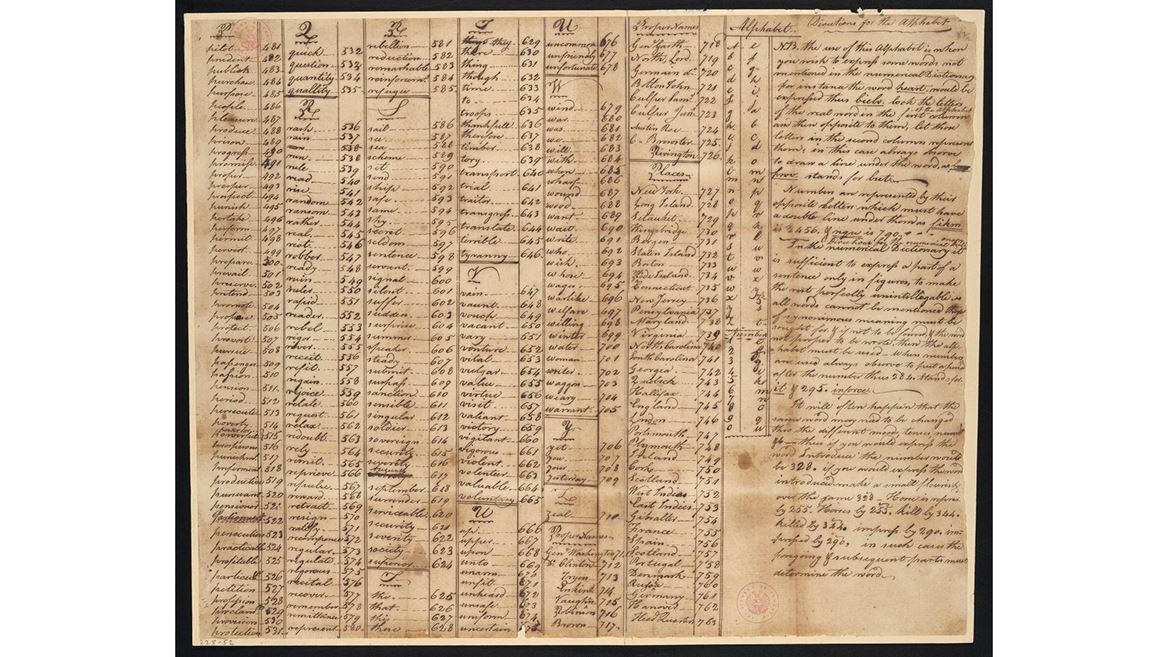 P
pilot 481
president 482
publick 483
purchase 484
purpose 485
people 486
pleasure 487
produce 488
prison 489
progress 490
promise 491
proper 492
prosper 493
prospect 494
punish 495
pertake 496
perform 497
permit 498
pervert 499
prepare 500
prevail 501
preserve 502
pretend 503
promote 504
propose 505
protect 506
provost 507
pursue 508
509
passion 510
pension 511
period 512
persecute 513
poverty 514
515
prosperous 516
punishment 517
preferment 518
production 519
pursuant 520
pensioner 521
Parliament 522
persecution 523
practicable 524
profitable 525
particular 526
petition 527
profession 528
proclaim 529
provision 530
protection 531
Q
quick 532
question 533
quantity 534
quallity 535
R
rash 536
rain 537
538
run 539
rule
read 540
rise 541
random 542
ransom 543
rather 544
real 545
riot 546
robber 547
ready 548
ruin 549
ruler 550
rapid 551
reader 552
rebel 553
rigor 554
river 555
receit 556
refit 557
regain 558
rejoice 559
relate 560
request 561
relax 562
redouble 563
rely 564
remit 565
reprieve 566
repulse 567
reward 568
retract 569
resign 570
ratify 571
recompence 572
regular 573
regulate 574
rigorous 575
recital 576
recover 577
remember 578
remittence 579
represent 580
R
rebellion 581
reduction 582
remarkable 583
reinforcement 584
refugee 585
S
sail 586
see 587
sea 588
scheme 589
set 590
send 591
ship 592
safe 593
same 594
sky 595
secret 596
seldom 597
sentence 598
servant 599
signal 600
silent 601
suffer 602
sudden 603
surprise 604
summer 605
speaker 606
steady 607
submit 608
surpass 609
sanction 610
sensible 611
singular 612
soldier 613
sovereign 614
security 615
severity 616
617
september 618
surrender 619
serviceable 620
security 621
severity 622
society 623
superior 624
T
the 625
that 626
this 627
there 628
T
thing they 629
there 630
thing 631
though 632
time 633
to 634
troops 635
thankfull 636
therefore 637
timber 638
tory 639
transport 640
trial 641
traitor 642
transgress 643
translate 644
terrible 645
tyranny 646
V
vain 647
vaunt 648
vouch 649
vacant 650
vary 651
venture 652
vital 653
vulgar 654
value 655
virtue 656
visit 657
valiant 658
victory 659
vigilant 660
vigorous 661
violent 662
violence 663
valuable 664
voluntary 665
U
up 666
upper 667
upon 668
unto 669
unarm 670
unfit 671
unheard 672
unsafe 673
uniform 674
uncertain 675
U
uncommon 676
unfriendly 677
unfortunate 678
W
wind 679
war 680
was 681
we 682
will 683
with 684
when 685
wharf 686
wound 687
wood 688
want 689
wait 690
write 691
who 692
wish 693
whose 694
wages 695
warlike 696
welfare 697
willing 698
winter 699
water 700
woman 701
writer 702
waggon 703
weary 704
warrant 705
Y
yet 706
you 707
your 708
yesterday 709
Z
zeal 710
Proper Names
Gen Washington 711
Do Clinton 712
Tryon 713
Erskine 714
Vaughn 715
Robinson 716
Brown 717
Proper Names
Gen Garth 718
North, Lord 719
Germain do 720
Bolton John 721
Culper Saml 722
Culper Junr 723
Austin Roe 724
C. Brewster 725
Rivington 726
Places
New York 727
Long Island 728
Setauket 729
Kingsbridge 730
Bergen 731
Staten Island 732
Boston 733
Rode Island 734
Connecticut 735
New Jersey 736
Pensylvania 737
Maryland 738
Virginia 739
North Carolina 740
South Carolina 741
Georgia 742
Quebeck 743
Hallifax 744
England 745
London 746
Portsmouth 747
Plymouth 748
Ireland 749
Cork 750
Scotland 751
West Indies 752
East Indies 753
Gibralter 754
France 755
Spain 756
Scotland 757
Portugal 758
Denmark 759
Russia 760
Germany 761
Hanover 762
Head Quarters 763
Alphabet
a e
b f
c g
d h
e i
f j
g a
h b
i c
j d
k o
l m
m n
n p
o q
p r
q k
r l
s u
t v
u w
v x
w y
x z
y s
z t
Numbers
1 e
2 f
3 g
4 i
5 k
6 m
7 n
8 o
9 q
0 u
Directions for the Alphabet
N.B. the use of this Alphabet is when
you wish to express some words not
mentioned in the numerical Dictionary
for instance the word heart. would be
expressed thus biels. look the letters
of the real word in the first column of the alphabet
and then opposite to them, let those
letters in the second column represent
them, in this case always observe
to draw a line under the word as
fwv. stands for but
Numbers are represented by their
opposite letters which must have
a double line under them as fikm
is 2456. & nqu is 790.
Directions for the numerical Dictionary
In the numerical Dictionary it
is sufficient to express a part of a
sentence only in figures, to make
the rest perfectly unintelligable, as
all words cannot be mentioned those
of synonomous meaning must be
sought for & if not to be found & the word
not proper to be wrote, then the alp-
habet must be used. When numbers
are used always observe to put a period
after the number thus 284. stands for
it & 295. inforce.
It will often happen that the
same word may need to be changed
thro the different moods, tenses, numbers
thus if you would express the
word Introduce the number would
be 328. if you would express the word
introduced make a small flourish
over the same 328. Horse is repre-
by 255. Horses by 255. kill by 344.
killed by 344. impress by 290. im-
pressed by 290. in such cases the
forgoing & subsequent parts must
determine the word.